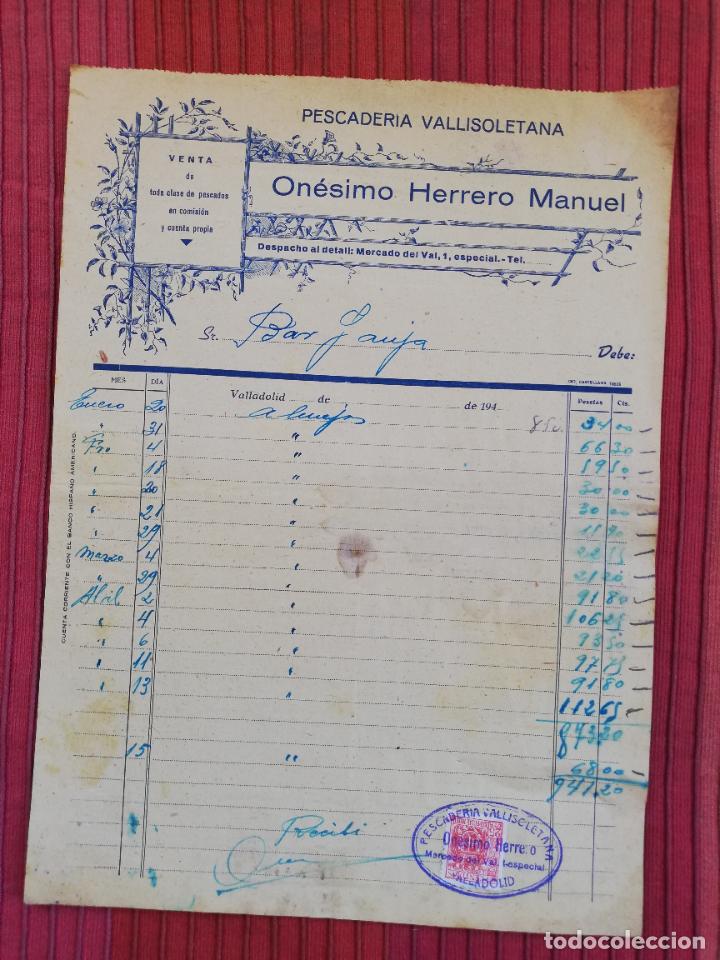 PESCADERIA VALLISOLETANA
VENTA
de
toda clase de pescados
en comisión
y cuenta propia
Onésimo Herrero Manuel
Despacho al detall: Mercado del Val, 1, especial.-Tel.
Sr. Bar Debe:
MES DÍA Pesetas Cts.
Valladolid de de 194
Enero 20 85c. 34 00
" 31 " 66 30
Fro 4 " 59 50
" 18 " 30 00
" 20 " 30 00
" 21 "
" 29 " 22 55
Marzo 4 " 21 20
" 29 " 91 80
Abil 2 " 106 25
" 4 " 93 50
" 6 " 97 75
" 11 " 91 80
" 13 " 112 65
873,20
15 " 68 00
941,20
CUENTA CORRIENTE CON EL BANCO HISPANO AMERICANO
Recibi
PESCADERIA VALLISOLETANA
Onésimo Herrero
Mercado del Val, 1-especial
VALLADOLID
todocoleccion
todocoleccion.net